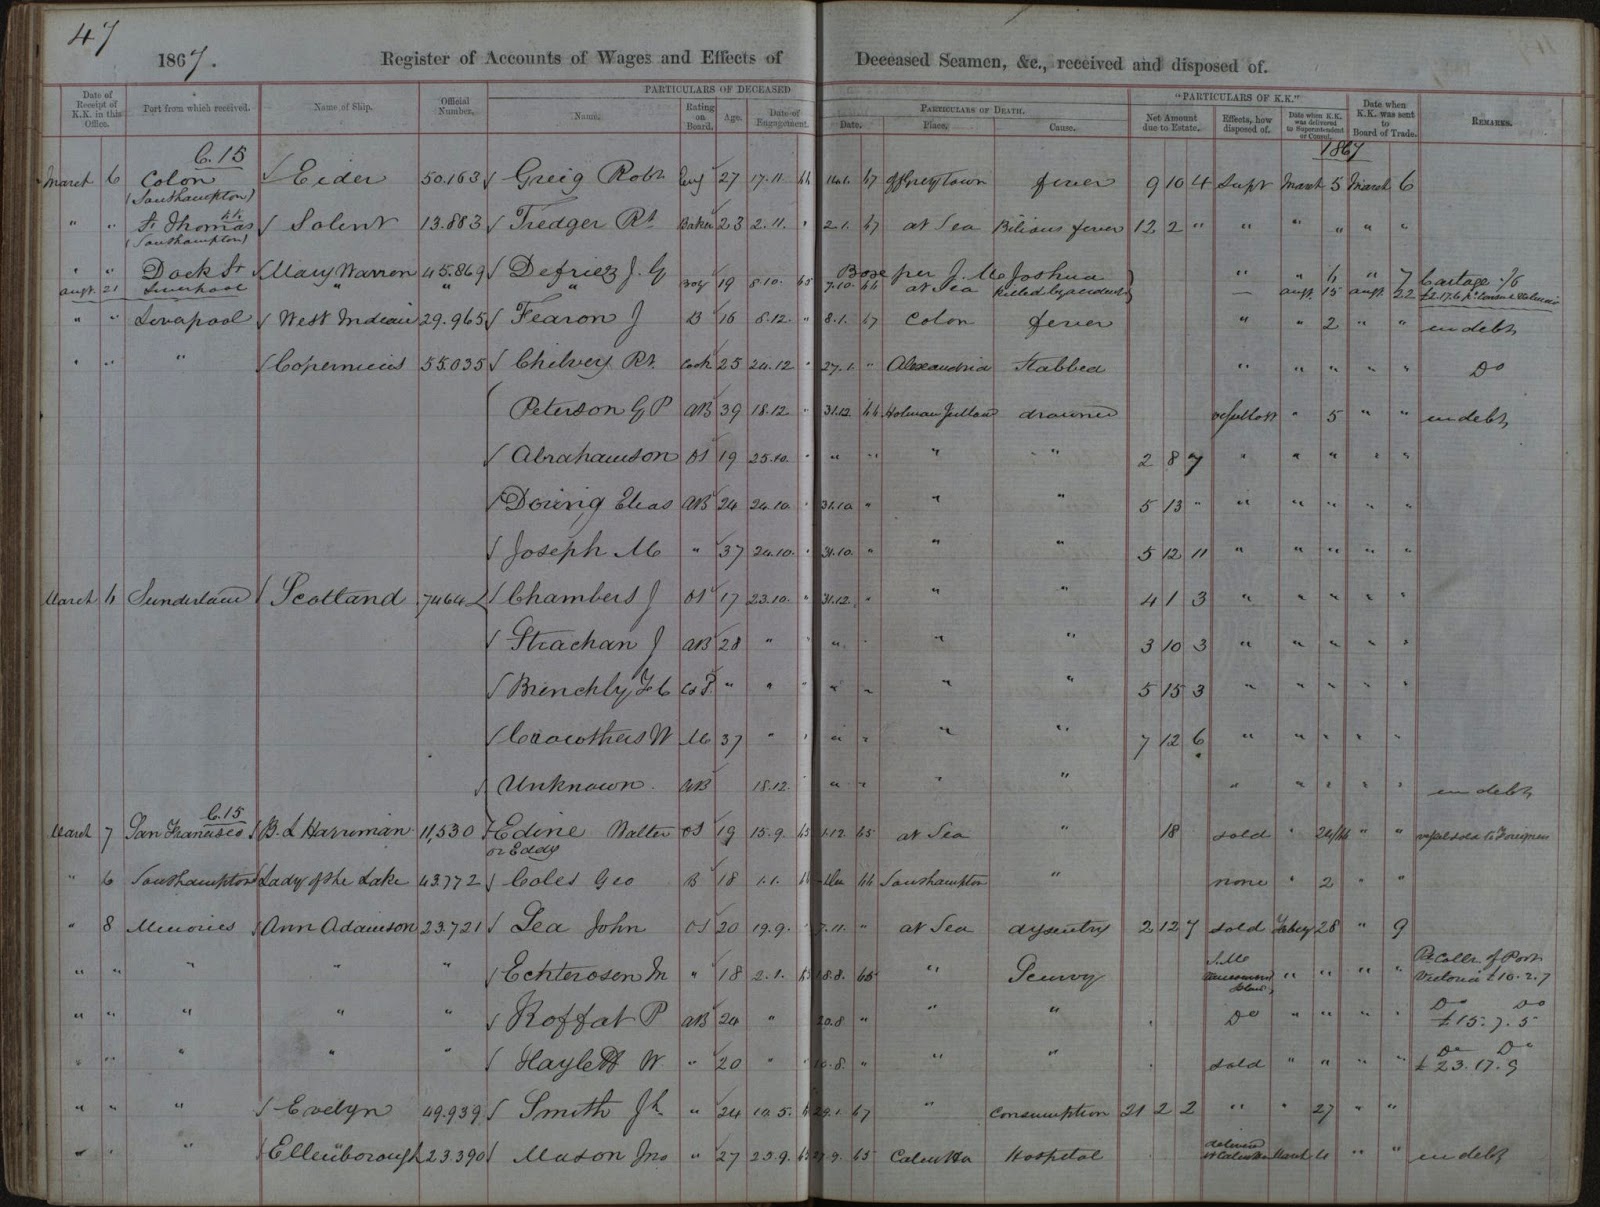 47
1867.
Register of Accounts of Wages and Effects of Deceased Seamen, &c., received and disposed of.
Date of Receipt of K.K. in this Office. Port from which received. Name of Ship. Official Number. PARTICULARS OF DECEASED Name. Rating on Board. Age. Date of Engagement. PARTICULARS OF DEATH. Date. Place. Cause. Net Amount due to Estate. "PARTICULARS OF K.K." Effects, how disposed of. Date when K.K. was delivered to Superintendent or Consul. Date when K.K. was sent to Board of Trade. REMARKS.
C.15 1867
March 6 Colon Eider 50.163 Greig Robt 27 17.11 66 67 Greytown fever 9 10 4 Supt March 5 March 6
(Southampton)
" " St Thomas Solent 13.883 Tredger Rt Baker 23 2.11. " 2.1. 67 at Sea Bilious fever 12 2 " " " " " "
(Southampton)
" " Dock St Mary Warren 45.869 Defriez J. G Boy 19 8.10. 65 Box per J. Mc Joshua " " 6 " 7 Cartage
augt. 21 Liverpool " " 7.10. 66 at Sea killed by accident — augt. 15 augt. 22
" " Liverpool West Indian 29.965 Fearon J B 16 8.12. " 8.1. 67 Colon fever " " 2 " " in debt
" " " Copernicus 55.035 Chilvey Rt. Cook 25 24.12 " 27.1. " Alexandria Stabbed " " " " " Do
Peterson G P AB 39 18.12. " 31.12 66 drowned " 5 " " in debt
Abrahamson OS 19 25.10. " " " " " 2 8 7 " " " " "
Elias AB 24 24.10. " 31.10 " " " 5 13 " " " " " "
Joseph M " 37 24.10. " 31.10. " " " 5 12 11 " " " " "
March 6 Sunderland Scotland Chambers J OS 17 23.10. " 31.12. " " " 4 1 3 " " " " "
Strachan J AB 28 " " " " " " 3 10 3 " " " " "
Brinchly " " " " " " " 5 15 3 " " " " "
Carowthers W M 37 " " " " " " 7 12 6 " " " " "
Unknown AB 18.12. " " " " " " " " " in debt
C.15
March 7 San Francisco B. L Harriman 11,530 Edine Walter OS 19 15.9. 65 1.12 65 at Sea " 18 sold " " " vessel sold to Foreigners
or Eddy
" 6 Southampton Lady of the Lake 43.772 Coles Geo B 18 1.1. 66 Southampton " none " 2 " "
" 8 Menories Ann Adamson 23.721 Lea John OS 20 19.9. " 7.11. " at Sea dysentry 2 12 7 sold Feby 28 " 9
" " " " " Echteroson Jn " 18 2.1. 65 8.8. 65 " Scurvy " " " " Pr Collr. of Port
Victoria £10.2.7
" " " " " Roffat P AB 24 " 20.8 " " " Do " " " " Do Do
£15.7.5
" " " " " Haylett W. " 20 " 10.8. " " " sold " " " " Do Do
£23.17.9
" " " Evelyn 49.939 Smith Jh " 24 10.5. 29.1. 67 " Consumption 21 2 2 " " 27 " "
" " " Ellenborough 23.390 Mason Jno " 27 25.9. 65 65 Calcutta Hospital delivered at Calcutta March 4 " " in debt